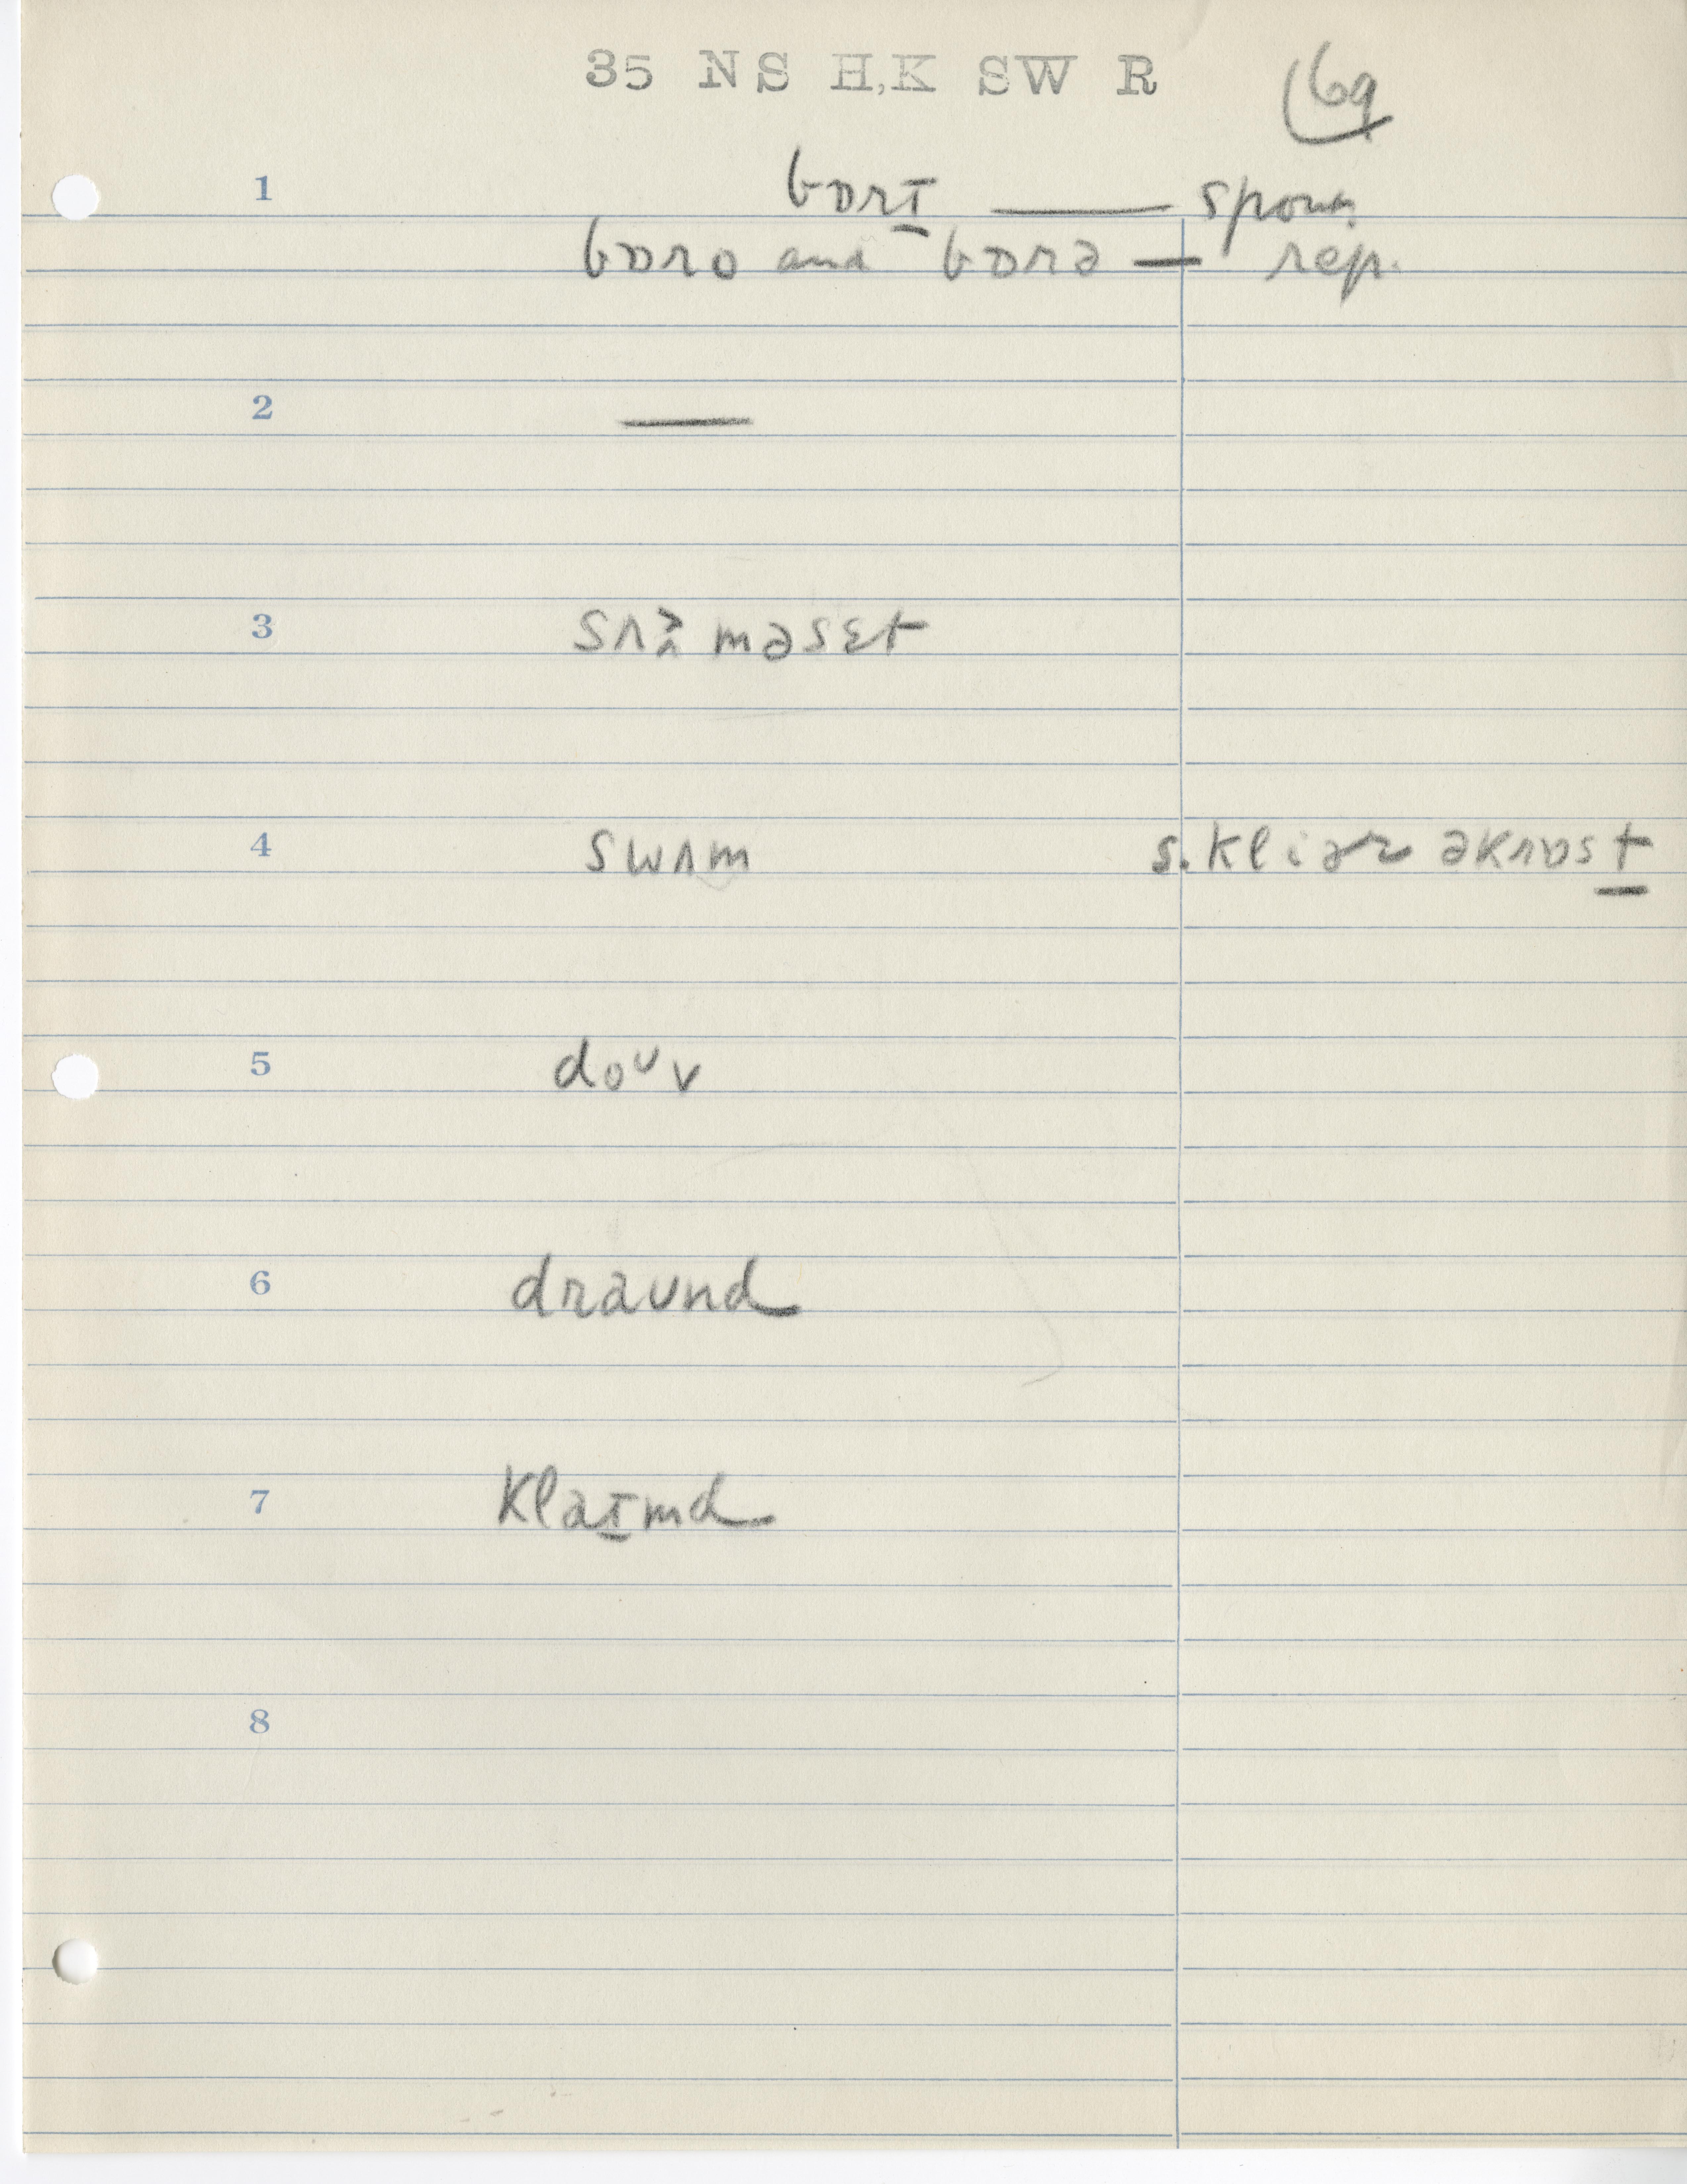 35 NS H,K SW R 69
1 bɒrɪ — spon.
bɒro and bɒrə — rep.
2 —
3 məsɛt
4 swʌm s. kliər əkrɒst
5 doᴜv
6 draᴜnd
7 klaɪmd
8